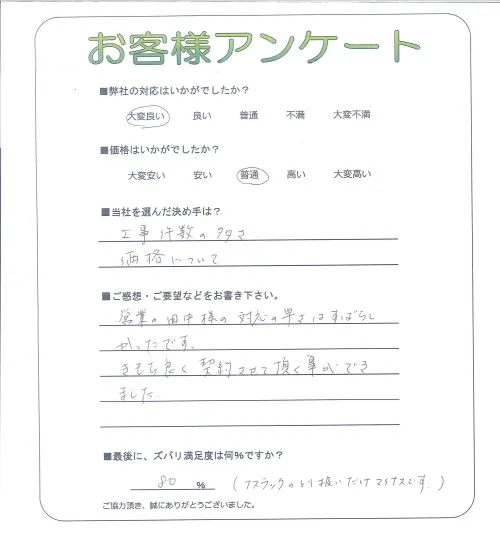 お客様アンケート
■弊社の対応はいかがでしたか?
大変良い 良い 普通 不満 大変不満
■価格はいかがでしたか?
大変安い 安い 普通 高い 大変高い
■当社を選んだ決め手は?
工事件数の多さ
価格について
■ご感想・ご要望などをお書き下さい。
営業の田中様の対応の早さはすばらし
かったです。
きもち良く契約させて頂く事ができ
ました
■最後に、ズバリ満足度は何%ですか?
80 % (ナスラックのとり扱いだけマイナスです。)
ご協力頂き、誠にありがとうございました。